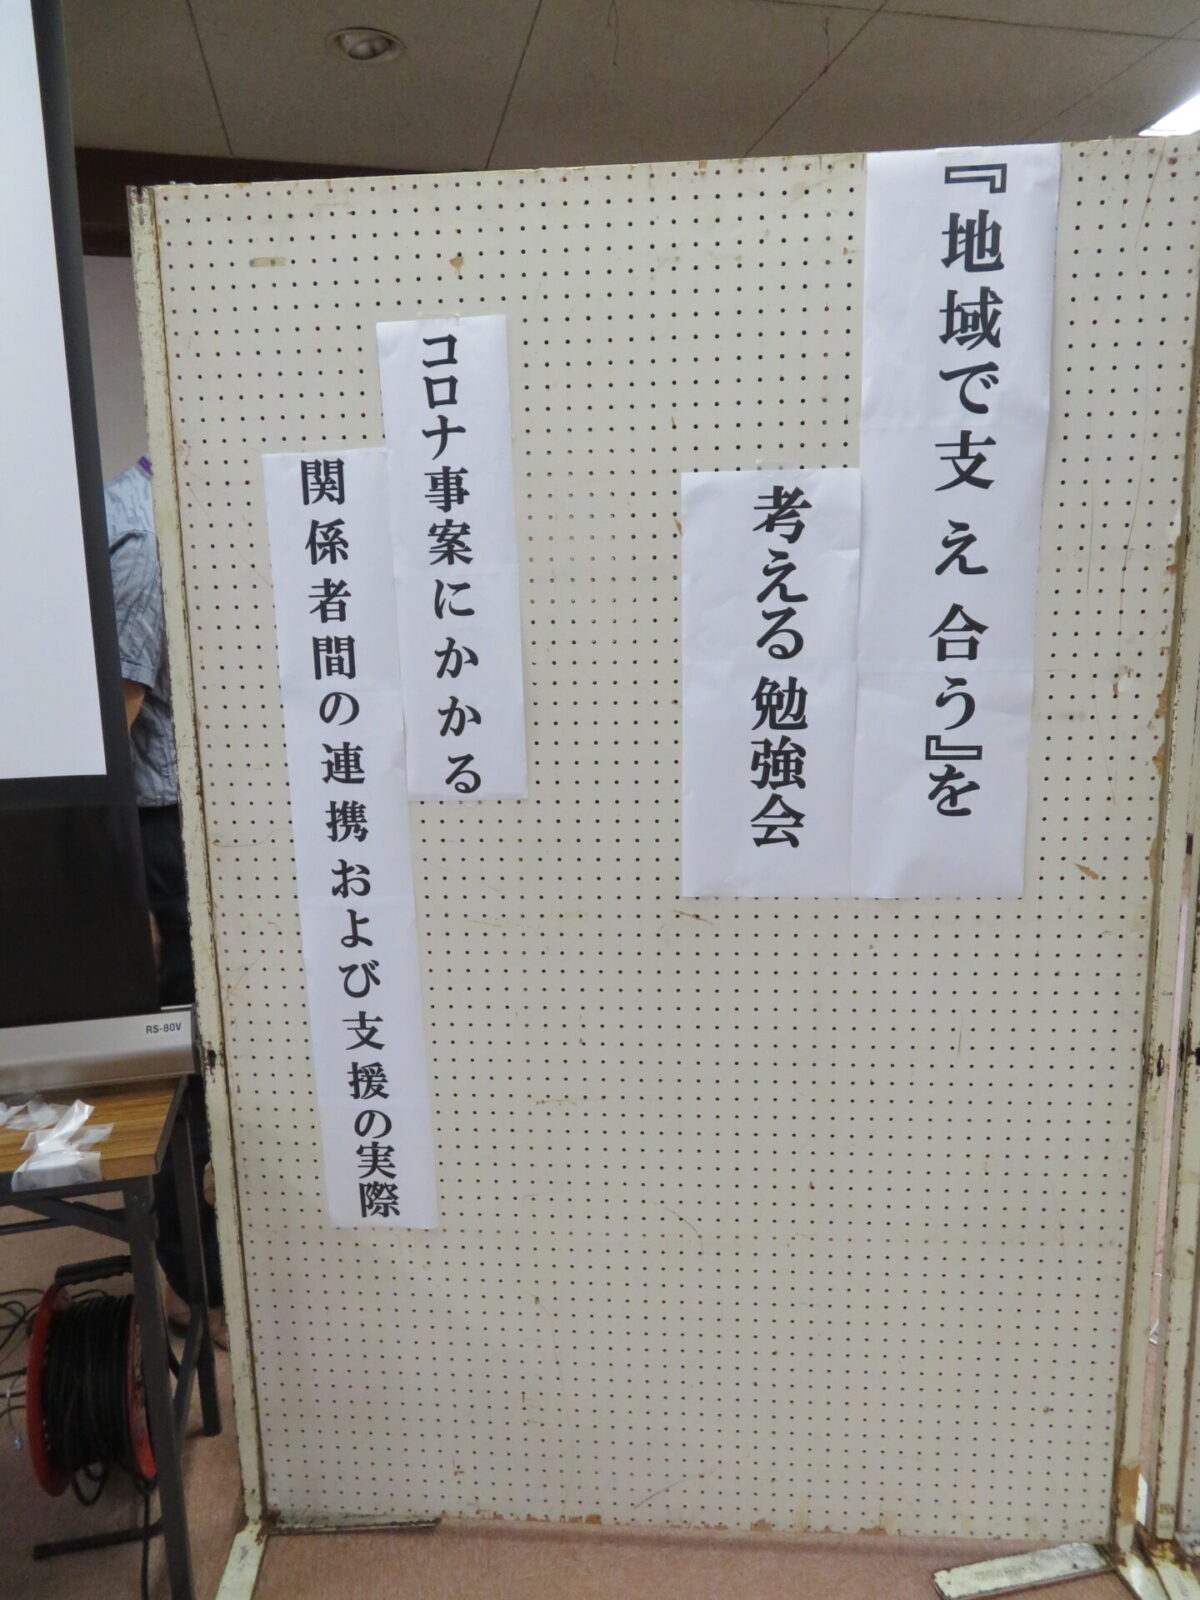 『地域で支え合う』を
考える勉強会
コロナ事案にかかる
関係者間の連携および支援の実際
RS-80V